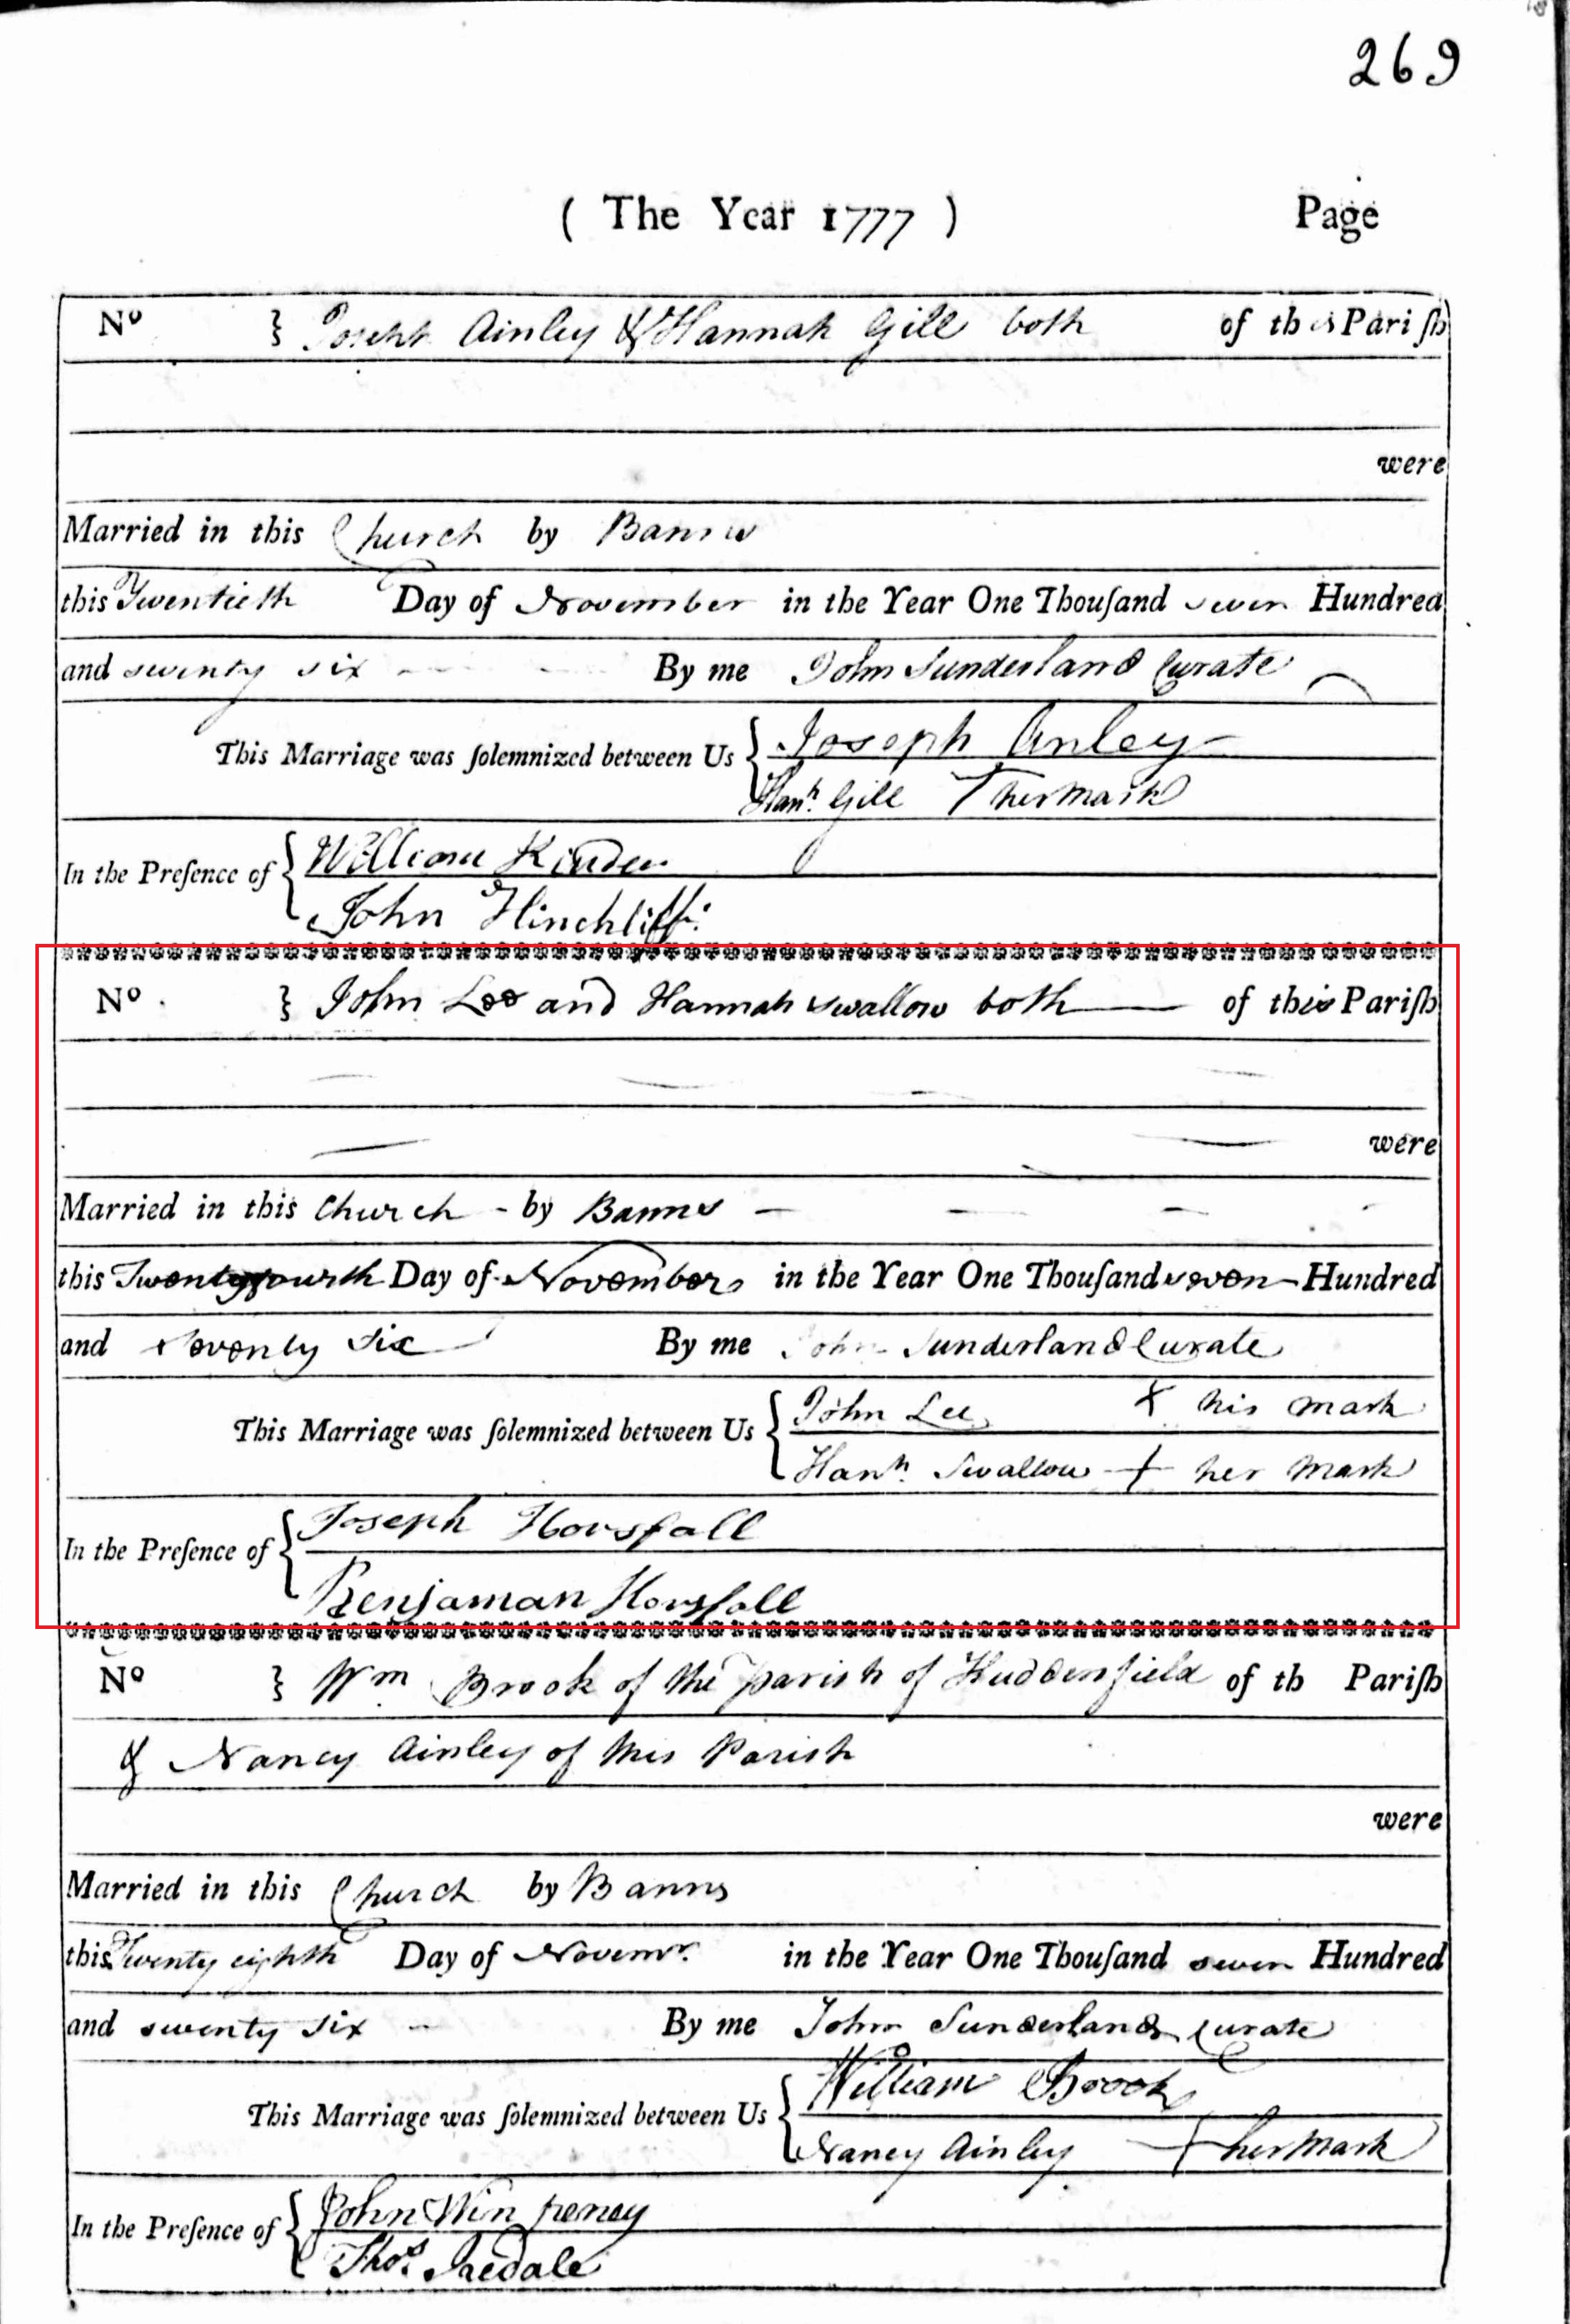 269
( The Year 1777 ) Page
No } Joseph Ainley & Hannah Gill both of this Parish
were
Married in this Church by Banns
this Twentieth Day of November in the Year One Thousand seven Hundred
and seventy six By me John Sunderland Curate
This Marriage was solemnized between Us { Joseph Anley
Hanh. Gill + her Mark
In the Presence of { William Kinder
John Hinchliff
No . } John Lee and Hannah Swallow both of this Parish
were
Married in this Church - by Banns
this Twentyfourth Day of November in the Year One Thousand seven Hundred
and Seventy Six By me John Sunderland Curate
This Marriage was solemnized between Us { John Lee X his mark
Hanh. Swallow + her Mark
In the Presence of { Joseph Horsfall
Benjaman Horsfall
No } Wm Brook of the Parish of Huddersfield of th Parish
& Nancy Ainley of this Parish
were
Married in this Church by Banns
this Twenty eighth Day of Novemr. in the Year One Thousand seven Hundred
and seventy six By me John Sunderland Curate
This Marriage was solemnized between Us { William Brook
Nancy Ainley + her Mark
In the Presence of { John Winpeney
Thos. Iredale